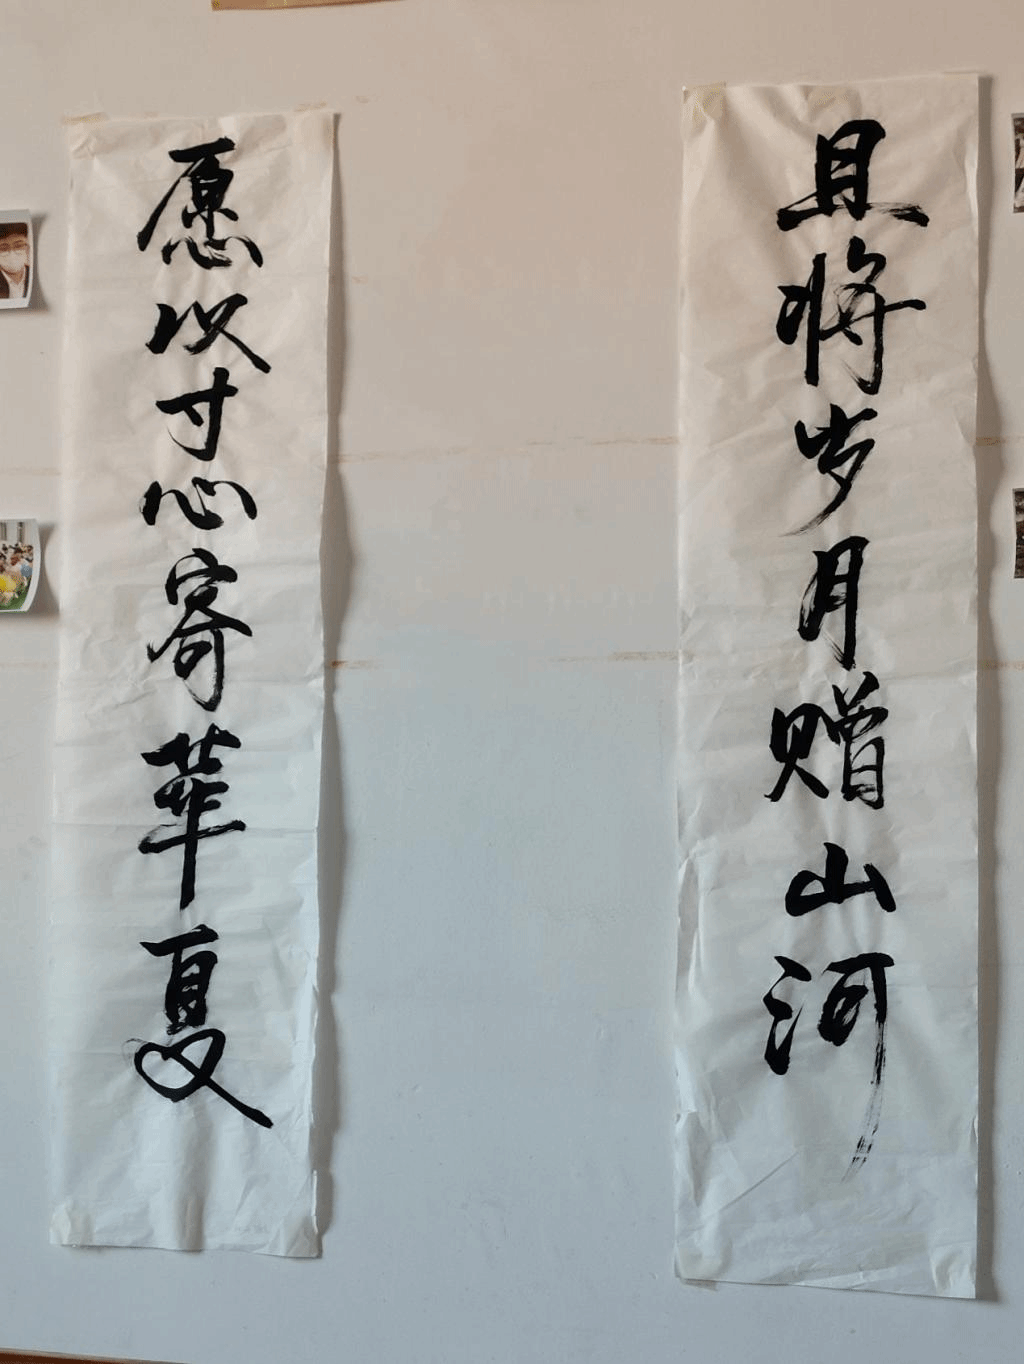 且将岁月赠山河
愿以寸心寄华夏